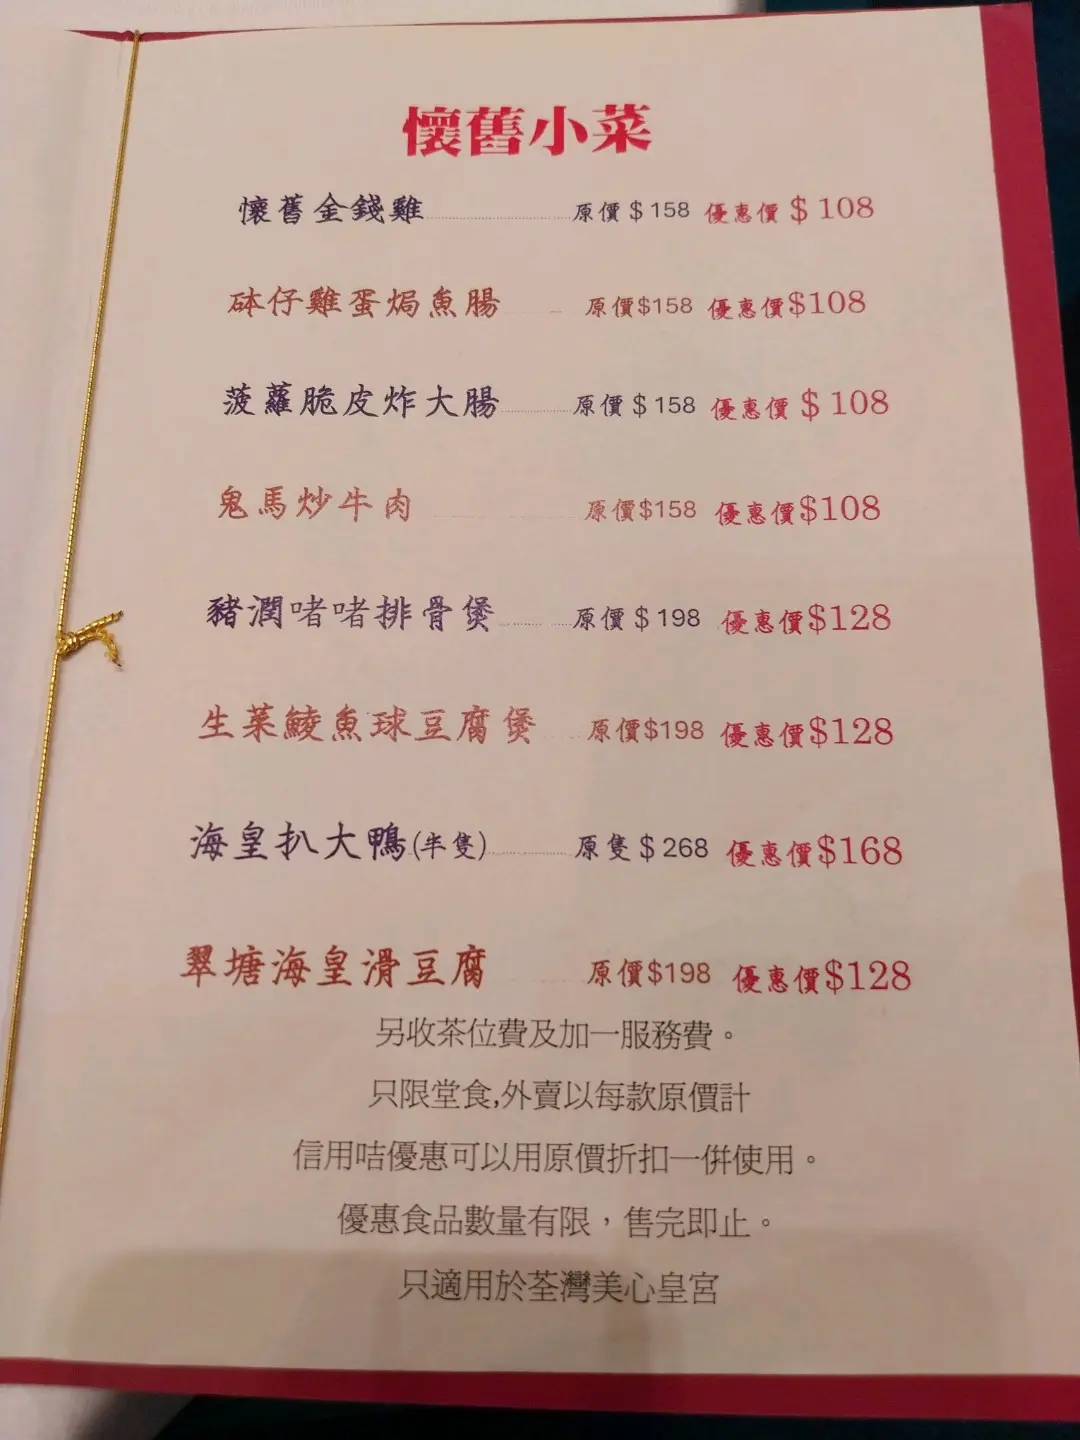 懷舊小菜
懷舊金錢雞 原價$158 優惠價$108
砵仔雞蛋焗魚腸 原價$158 優惠價$108
菠蘿脆皮炸大腸 原價$158 優惠價$108
鬼馬炒牛肉 原價$158 優惠價$108
豬潤啫啫排骨煲 原價$198 優惠價$128
生菜鯪魚球豆腐煲 原價$198 優惠價$128
海皇扒大鴨(半隻) 原隻$268 優惠價$168
翠塘海皇滑豆腐 原價$198 優惠價$128
另收茶位費及加一服務費。
只限堂食,外賣以每款原價計
信用咭優惠可以用原價折扣一併使用。
優惠食品數量有限，售完即止。
只適用於荃灣美心皇宮